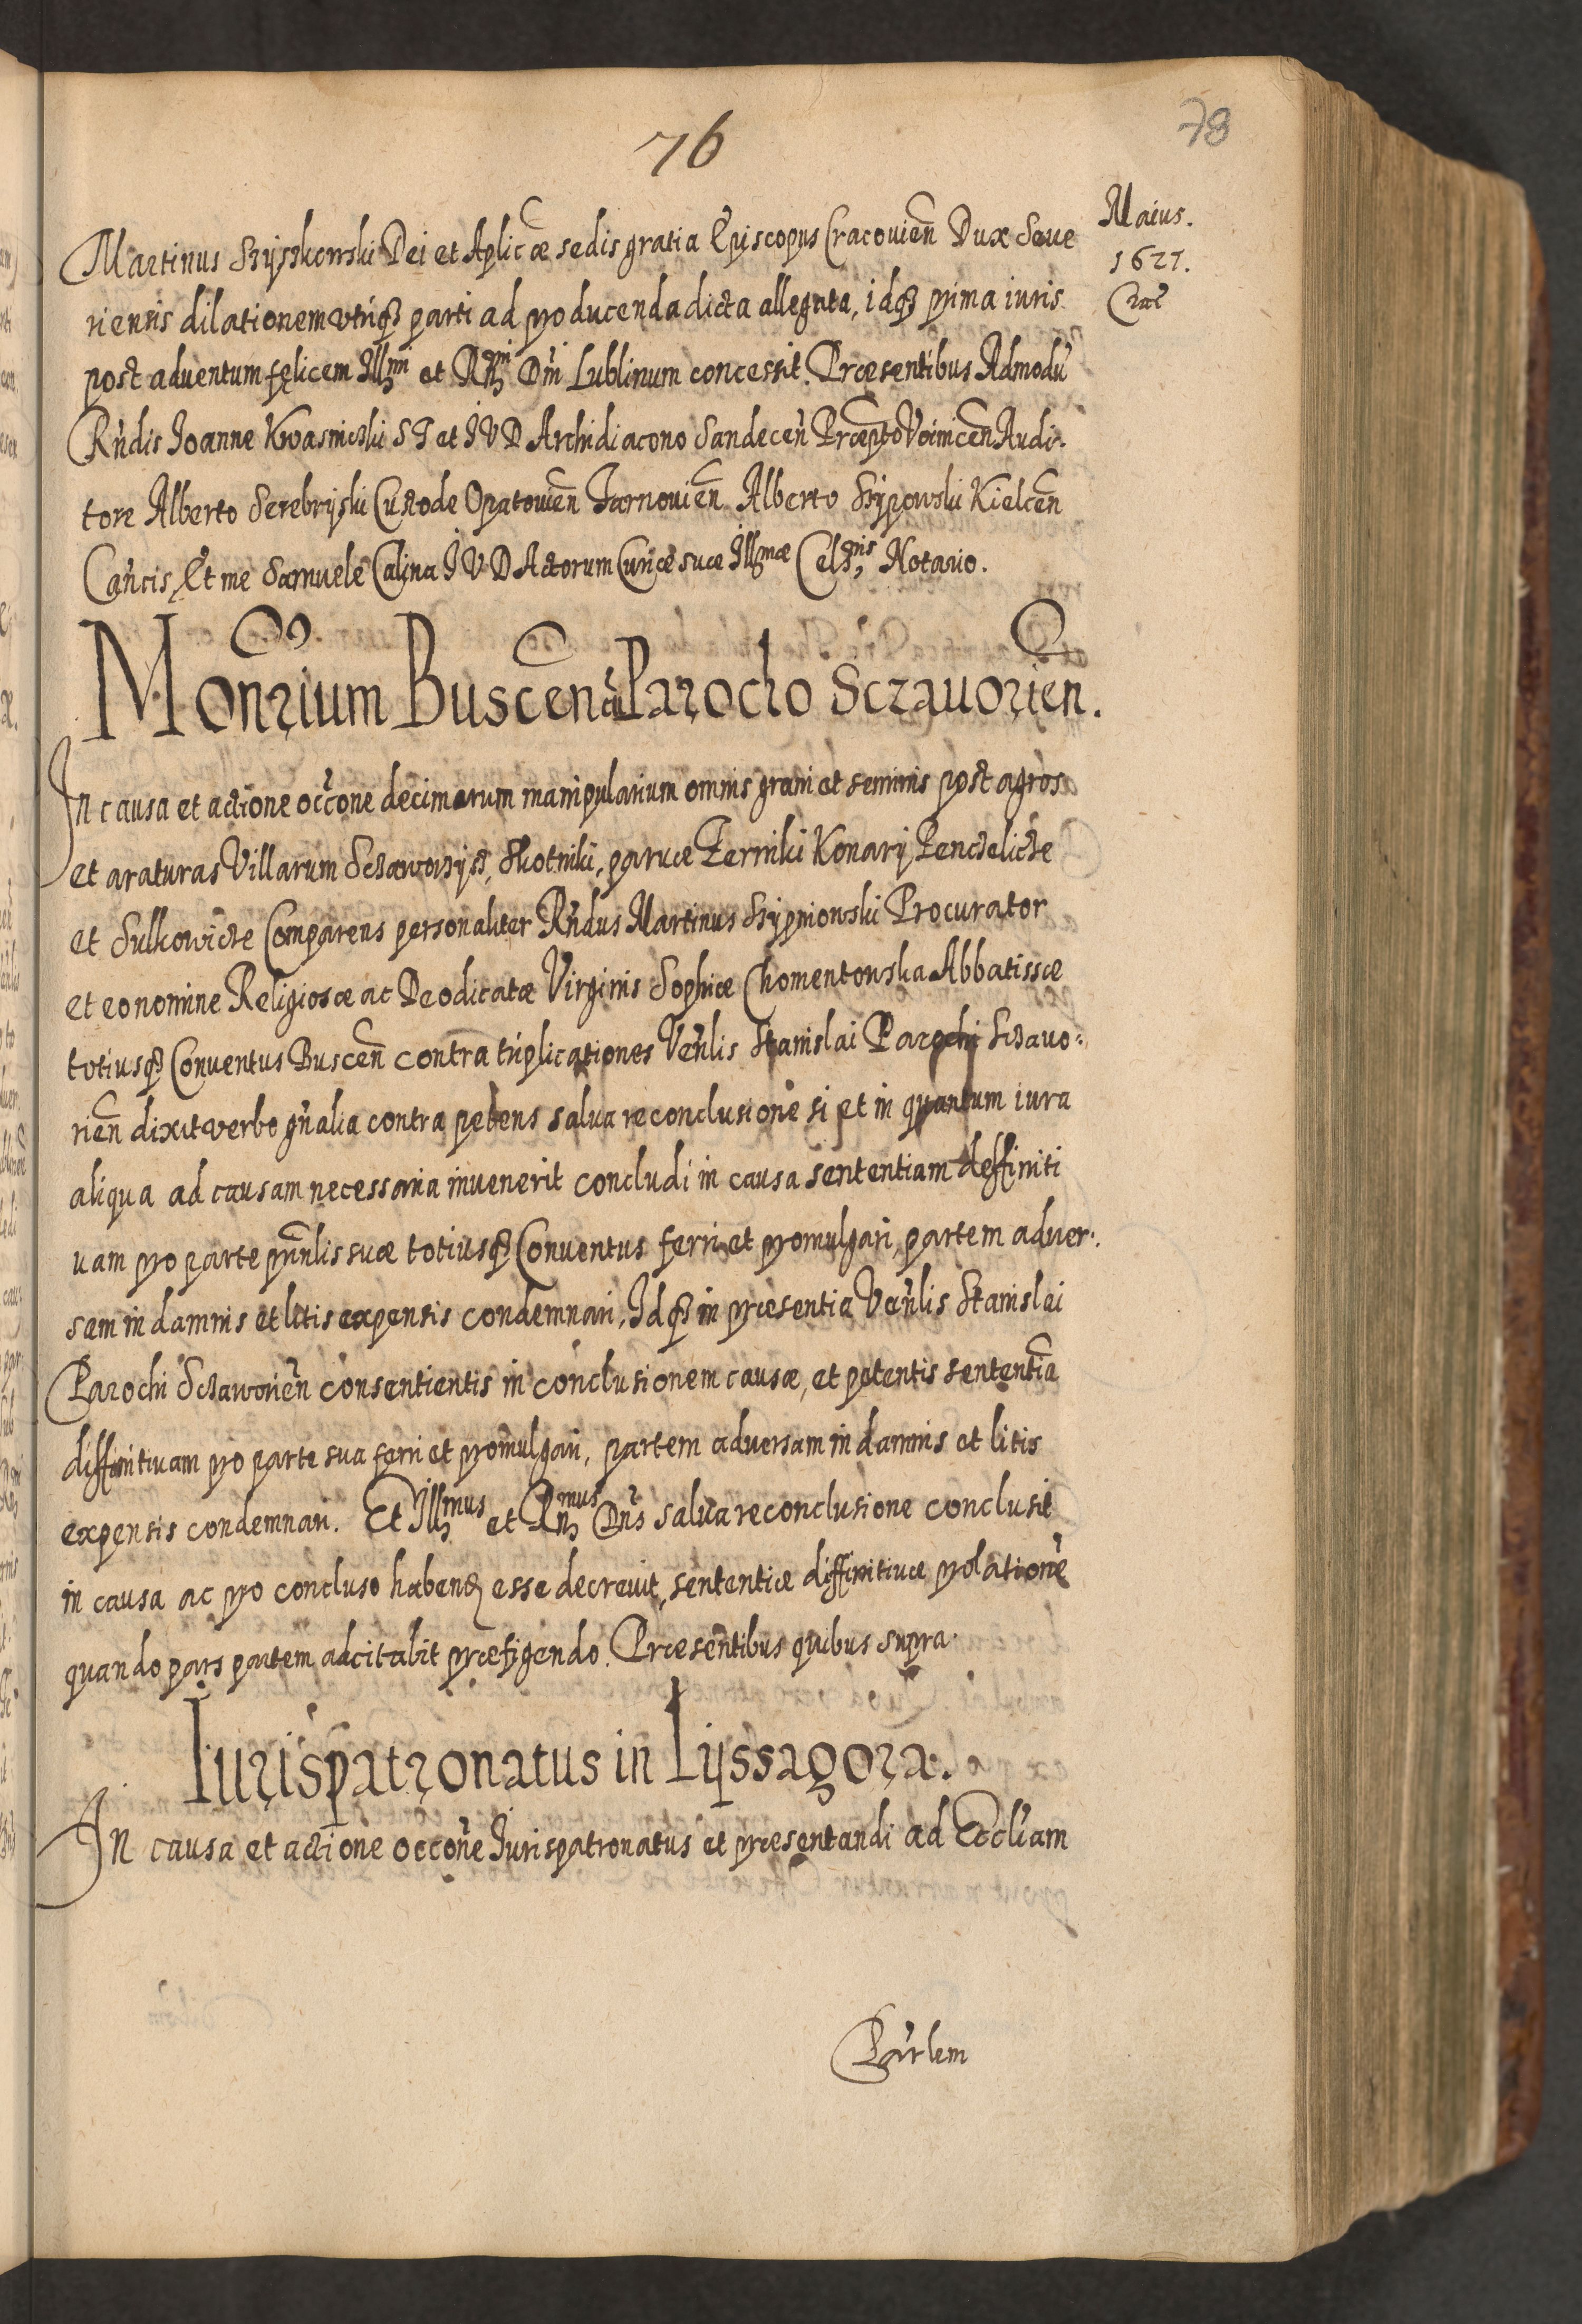 76
78
Maius.
1627.
Crac̃
Martinus Szyszkowski Dei et Aplicæ sedis gratia Episcopus Cracouien̄ Dux Seue
riensis dilationem utriq₃ parti ad producenda dicta allegata, idq₃ prima iuris
post aduentum felicem Illmi et Rmi Dni Lublinum concessit. Præsentibus Admodū
Rñdis Joanne Kwasnicki S T et I V D Archidiacono Sandecen̄ Præpto Voinicen̄ Audi-
tore Alberto Serebryski Custode Opatouien̄ Tarnouien̄ Alberto Sypowski Kielcen̄
Can̄cis, Et me Samuele Calina I V D Actorum Curiæ suæ Illmæ Celsnis Notario.
Monrium Buscen̄ cū Parocho Sczauorien.
In causa et actione occōne decimarum manipularium omnis grani et seminis post agros
et araturas Villarum Sczaworysz, Skotniki, paruæ Zerniki Konary Penczelicze
et Sulkowicze Comparens personaliter Rñdus Martinus Szypniowski Procurator
et eo nomine Religiosæ ac Deodicatæ Virginis Sophiæ Chomentowska Abbatissæ
totiusq₃ Conuentus Buscen̄ contra triplicationes Veñlis Stanislai Parochi Sczauo:
rien̄ dixit verbo gñalia contra petens salua reconclusione si et in quantum iura
aliqua ad causam necessaria inuenerit concludi in causa sententiam deffiniti
uam pro parte prin̄lis suæ totiusq₃ Conuentus ferri et promulgari, partem aduer-
sam in damnis et litis expensis condemnari, Idq₃ in præsentia Veñlis Stanislai
Parochi Sczaworien̄ consentientis in conclusionem causæ, et petentis sententia̅
diffinitiuam pro parte sua ferri et promulgari, partem aduersam in damnis et litis
expensis condemnari. Et Illmus et Rmus Dn̄s salua reconclusione conclusit
in causa ac pro concluso habend esse decreuit, sententiæ diffinitiuæ prolatione̅
quando pars partem adcitabit præfigendo. Præsentibus quibus supra.
Iurispatronatus in Lyssagora.
In causa et actione occōne Jurispatronatus et præsentandi ad Eccliam
Par̄lem